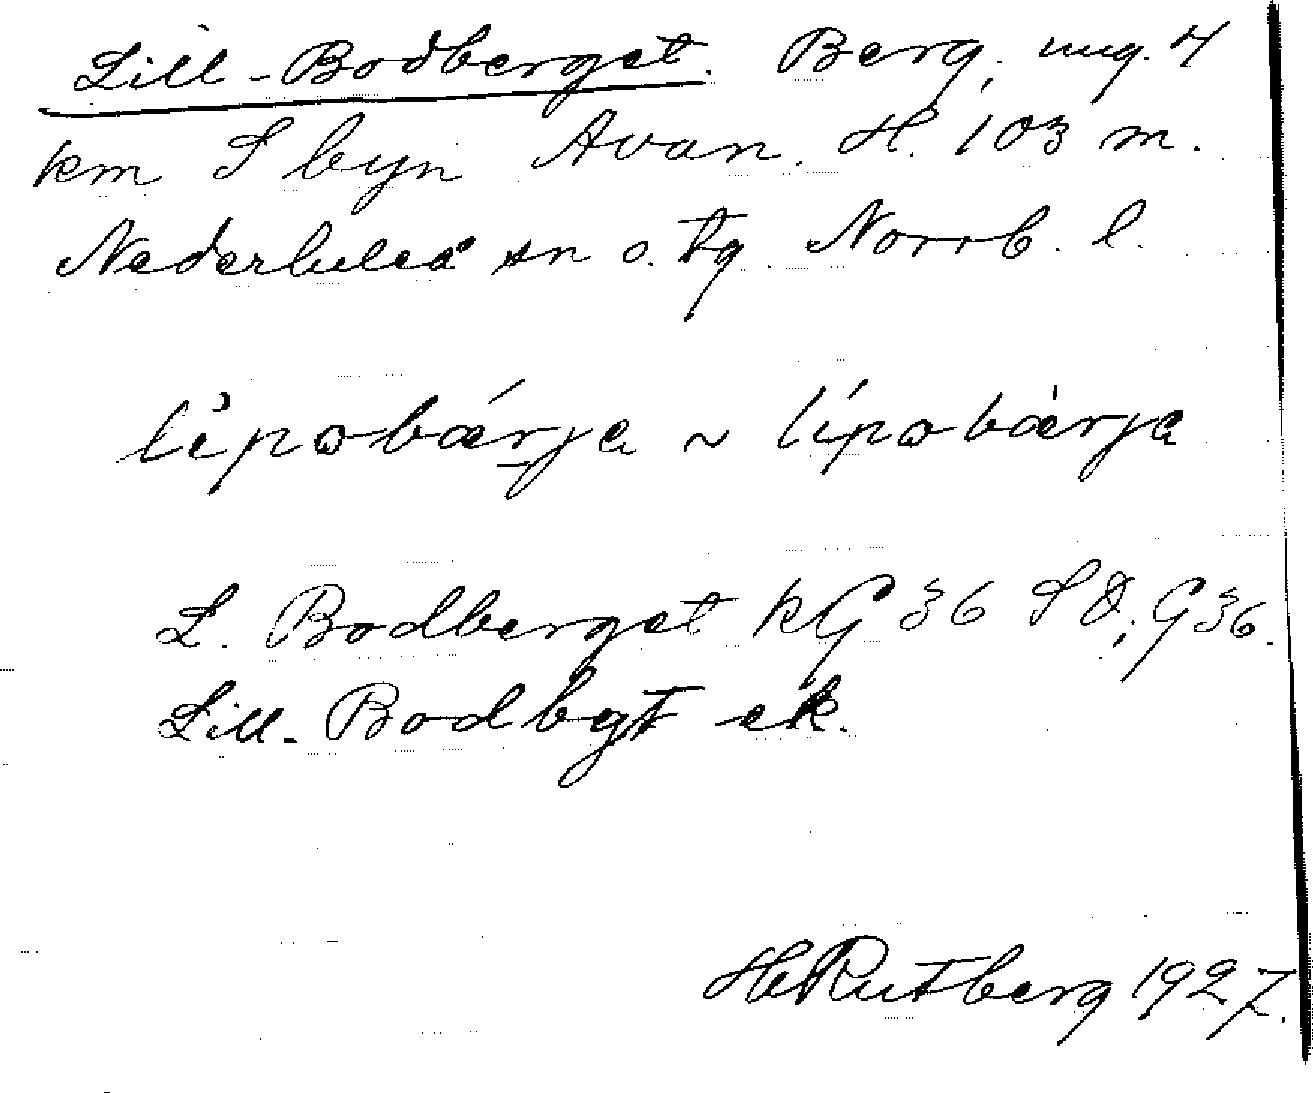 Lill-Bodberget. Berg, ung. 4
km S byn Avan. H. 103 m.
Nederluleå sn o. tg. Norrb. l.
lìpobárja ~ lípobàrja
L. Bodberget kG 36 SO; G 36.
Lill-Bodbgt ek.
H Rutberg 1927.